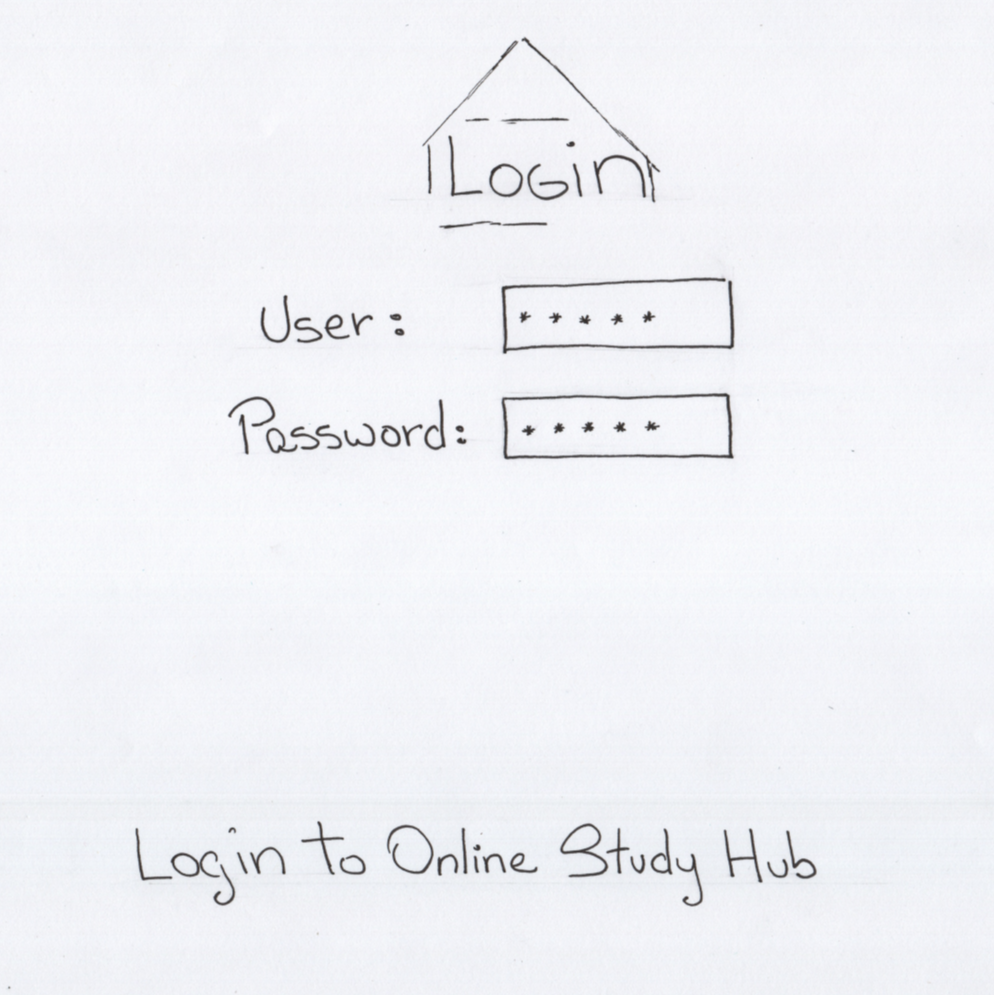 Login
User: * * * * *
Password: * * * * *
Login to Online Study Hub